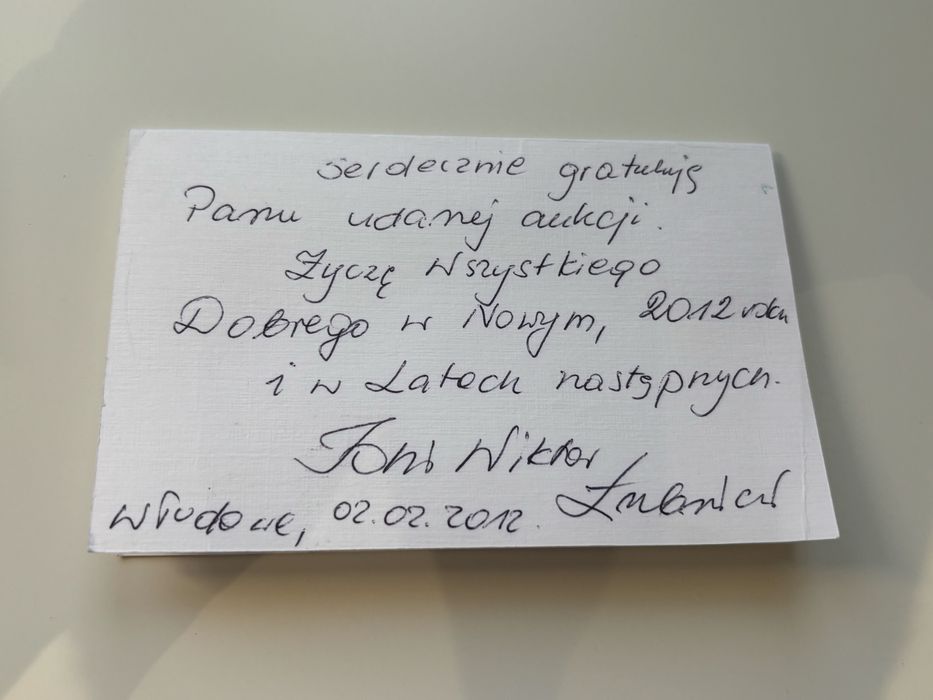 serdecznie gratuluję
Panu udanej aukcji.
Życzę Wszystkiego
Dobrego w Nowym, 2012 roku
i w Latach następnych.
Wiktor
02.02.2012.